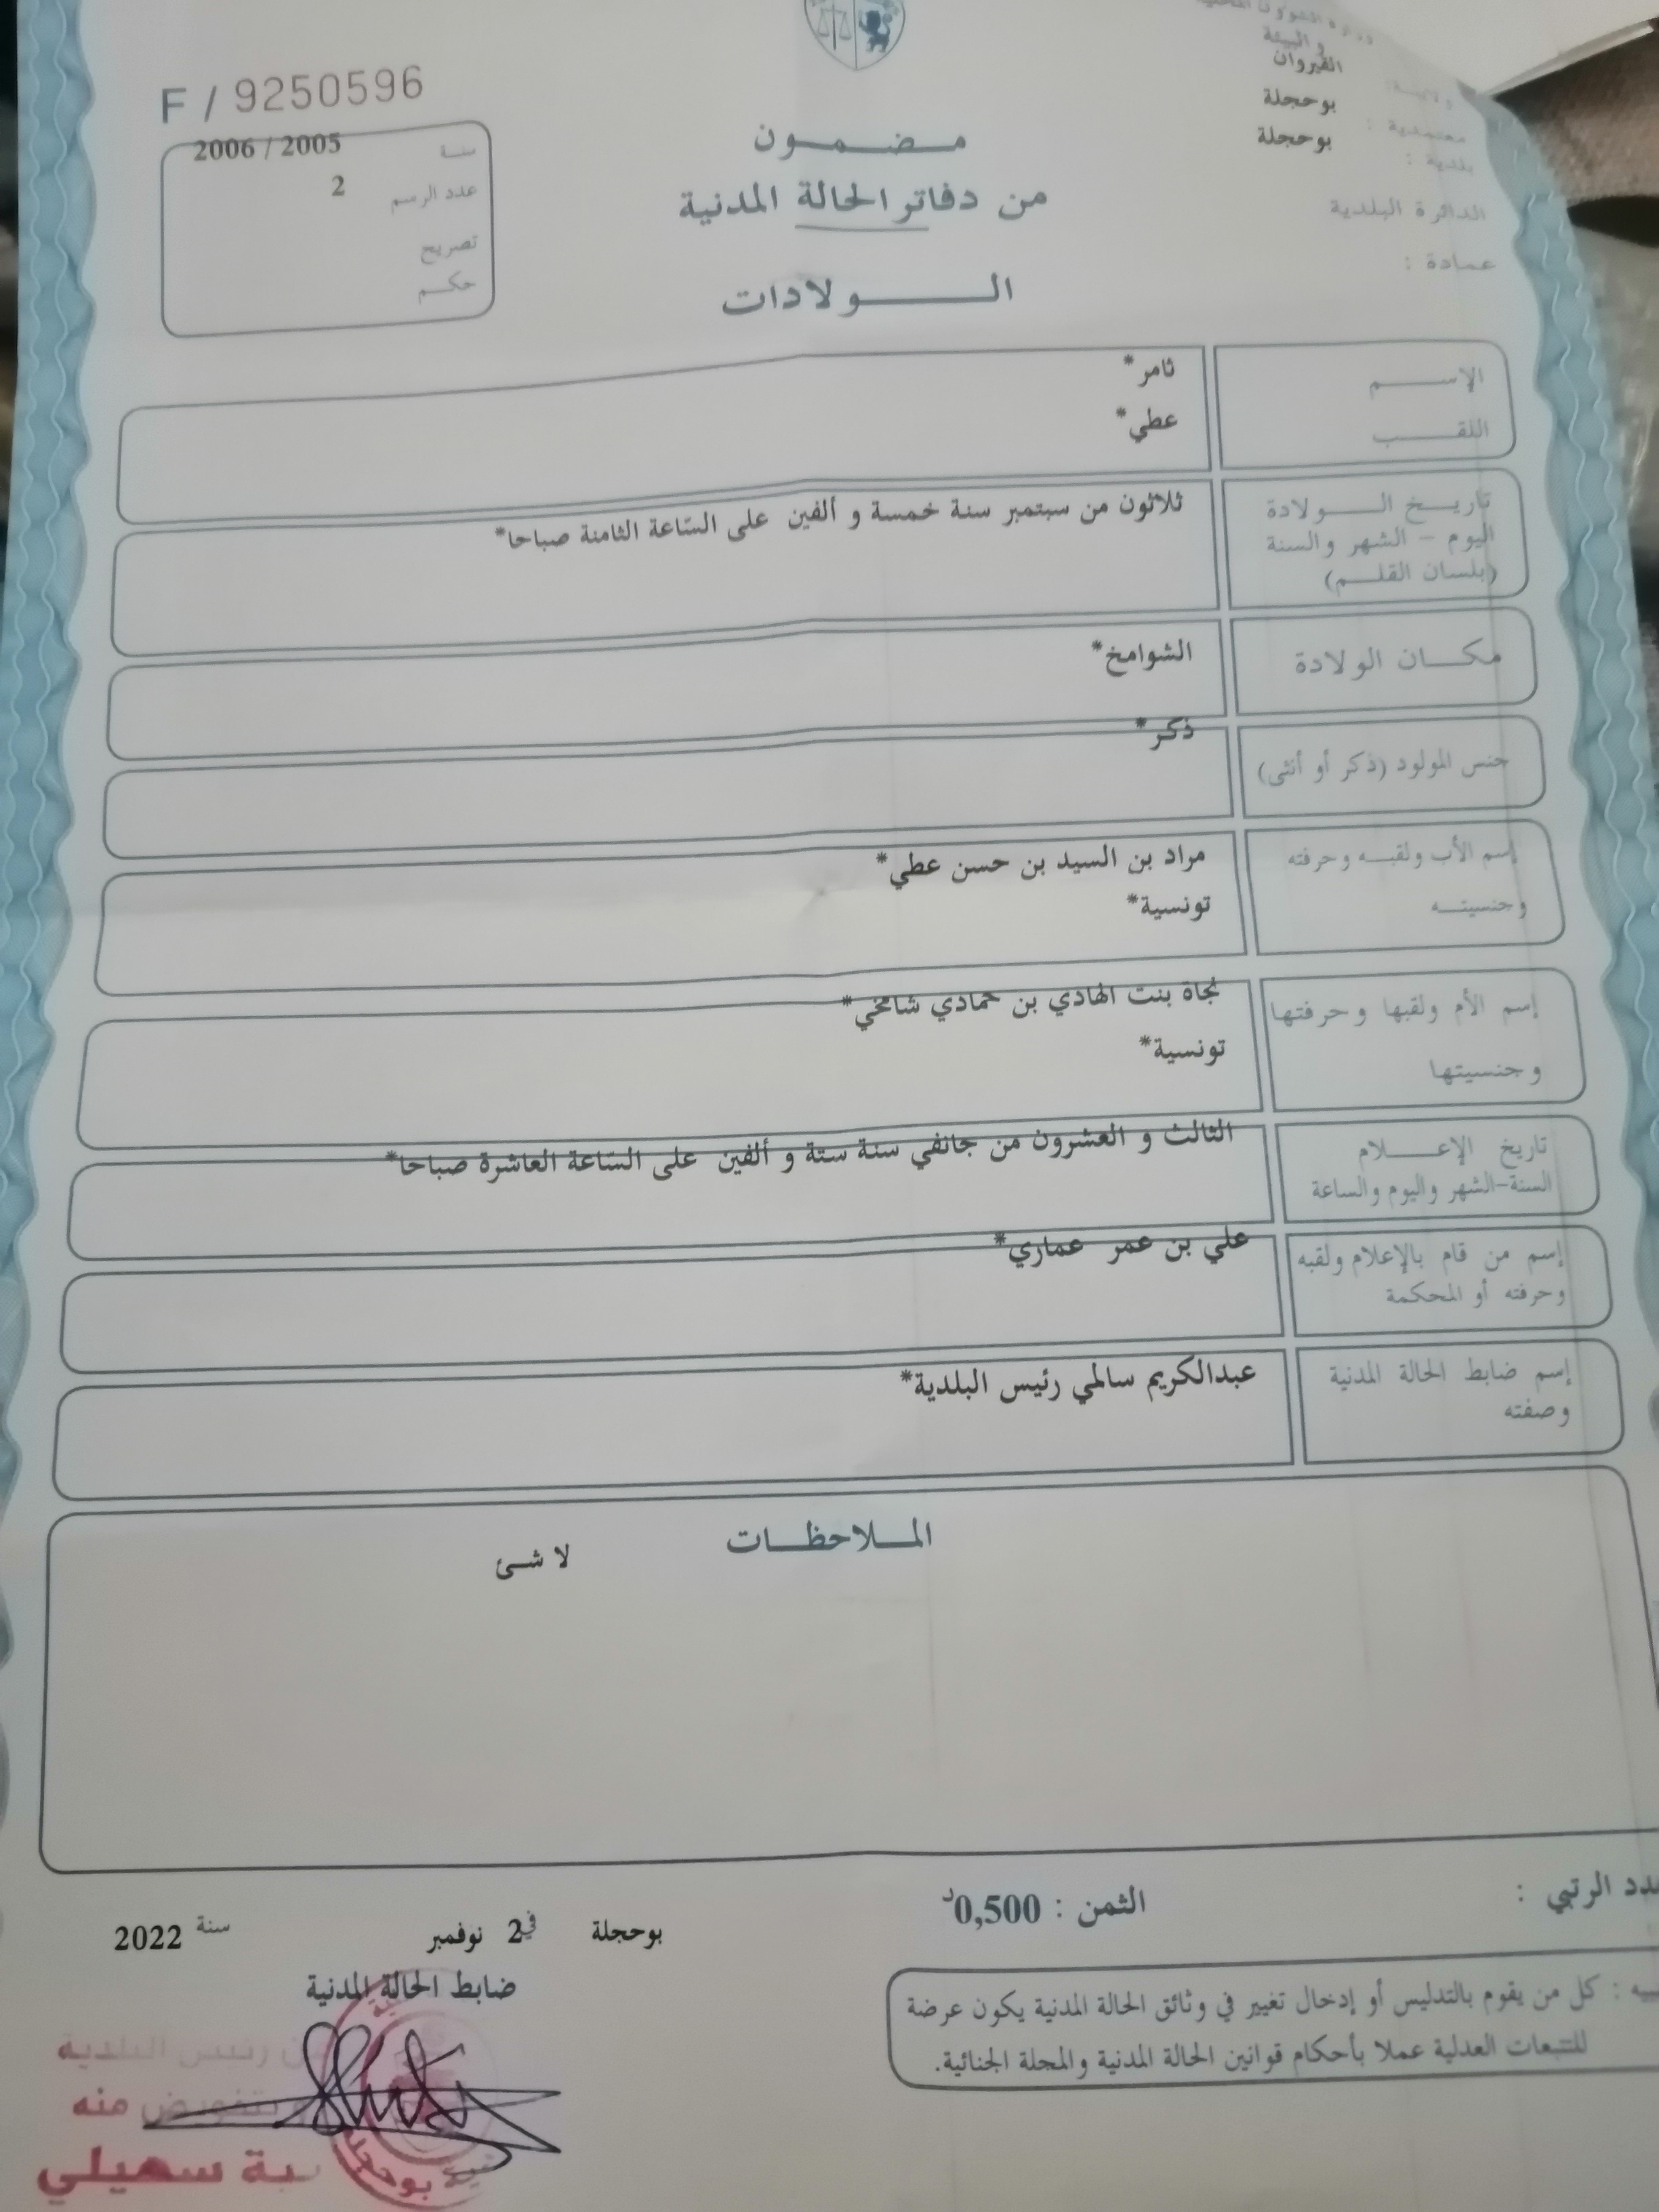 والبيئة
القيروان
معتمدية : بوحجلة
بلدية : بوحجلة
الدائرة البلدية
عمادة :
F / 9250596
سنة 2005 / 2006
عدد الرسم 2
تصريح
حكم
مضمون
من دفاتر الحالة المدنية
الولادات
الإسم ثامر*
اللقب عطي*
تاريخ الولادة
اليوم - الشهر والسنة
(بلسان القلم)
ثلاثون من سبتمبر سنة خمسة و ألفين على السّاعة الثامنة صباحا*
مكان الولادة الشوامخ*
جنس المولود (ذكر أو أنثى) ذكر*
إسم الأب ولقبه وحرفته مراد بن السيد بن حسن عطي*
وجنسيته تونسية*
إسم الأم ولقبها وحرفتها نجاة بنت الهادي بن حمادي شامخي*
وجنسيتها تونسية*
تاريخ الإعلام
السنة-الشهر واليوم والساعة
الثالث و العشرون من جانفي سنة ستة و ألفين على السّاعة العاشرة صباحا*
إسم من قام بالإعلام ولقبه
وحرفته أو المحكمة
علي بن عمر عماري*
إسم ضابط الحالة المدنية
وصفته
عبدالكريم سالمي رئيس البلدية*
الملاحظات
لا شئ
الرتبي :
الثمن : 0,500د
بوحجلة في 2 نوفمبر سنة 2022
ضابط الحالة المدنية
رئيس البلدية
وبتفويض منه
سهيلي
بوحجلة
: كل من يقوم بالتدليس أو إدخال تغيير في وثائق الحالة المدنية يكون عرضة
للتتبعات العدلية عملا بأحكام قوانين الحالة المدنية والمجلة الجنائية.